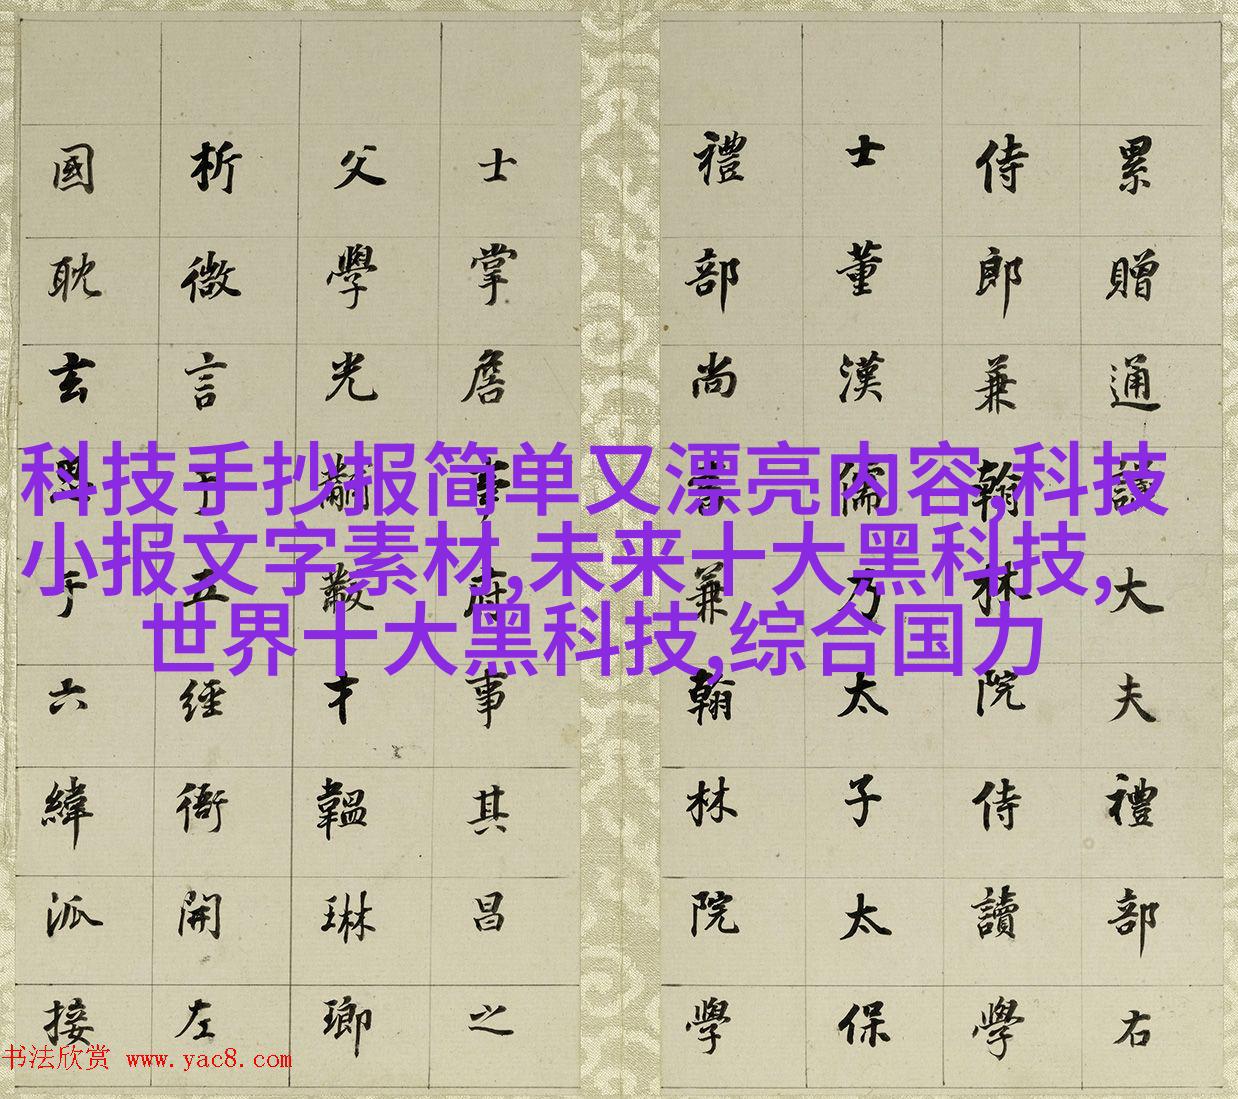 累贈通議大夫禮部右
侍郎兼翰林院侍讀學
士董漢儒乃太子太保
禮部尚書兼翰林院學
士掌詹事府事其昌之
父學光黼黻才韞琳瑯
析微言于五經開左
國耽玄于六緯派接
科技手抄报简单又漂亮内容,科技
小报文字素材,未来十大黑科技,
世界十大黑科技,综合国力
书法欣赏 www.yac8.com